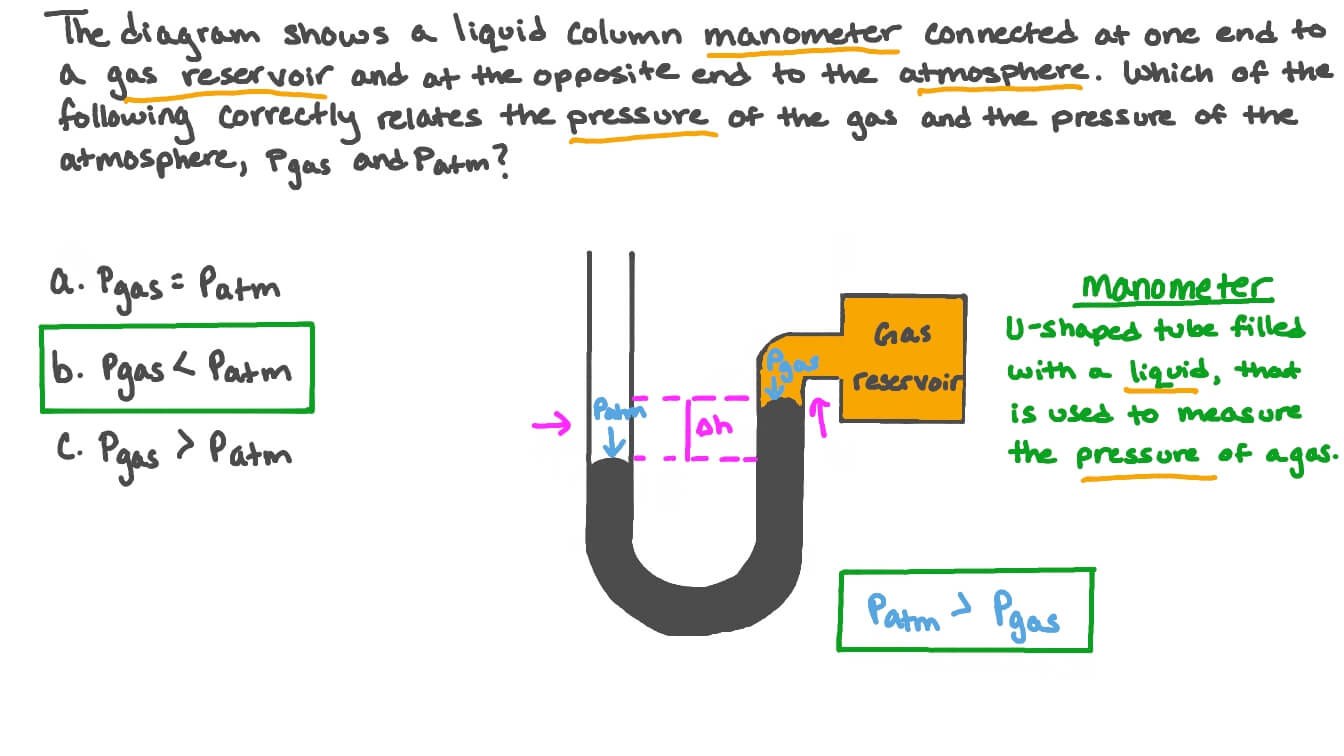 The diagram shows a liquid column manometer connected at one end to
a gas reservoir and at the opposite end to the atmosphere. Which of the
following correctly relates the pressure of the gas and the pressure of the
atmosphere, Pgas and Patm?
a. Pgas = Patm
b. Pgas < Patm
c. Pgas > Patm
Patm
Δh
Pgas
Gas
reservoir
Manometer
U-shaped tube filled
with a liquid, that
is used to measure
the pressure of a gas.
Patm > Pgas